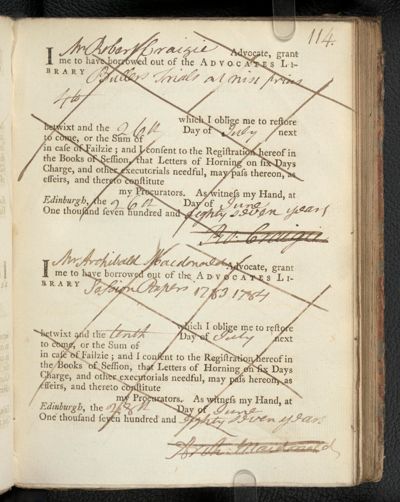 114.
I Mr Robert Craigie Advocate, grant
me to have borrowed out of the ADVOCATES LI-
BRARY Bullers Trials at nisi prius
4to
which I oblige me to reſtore
betwixt and the 26th Day of July next
to come, or the Sum of
in caſe of Failzie; and I conſent to the Regiſtration hereof in
the Books of Seſſion, that Letters of Horning on ſix Days
Charge, and other executorials needful, may paſs thereon, as
effeirs, and thereto conſtitute
my Procurators. As witneſs my Hand, at
Edinburgh, the 26th Day of June
One thouſand ſeven hundred and eighty seven years
Ro: Craigie
I Mr. Archibald Macdonald Advocate, grant
me to have borrowed out of the ADVOCATES LI-
BRARY Session Papers 1783 1784
which I oblige me to reſtore
betwixt and the tenth Day of July next
to come, or the Sum of
in caſe of Failzie; and I conſent to the Regiſtration hereof in
the Books of Seſſion, that Letters of Horning on ſix Days
Charge, and other executorials needful, may paſs hereon, as
effeirs, and thereto conſtitute
my Procurators. As witneſs my Hand, at
Edinburgh, the 28th Day of June
One thouſand ſeven hundred and eighty seven years
Archd. Macdonald